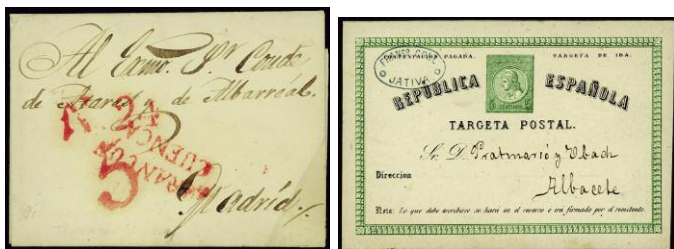 Al Exmo. Sr. Conde
de
y de Albarreal.
TARANCON
CUENCA
5
Madrid
CONTESTACION PAGADA. TARGETA DE IDA.
JATIVA
REPÚBLICA ESPAÑOLA
TARGETA POSTAL.
Sr. D. Pratmarió y Ubach
Direccion
Albacete
Nota: Lo que debe escribirse se hará en el reverso é irá firmado por el remitente.